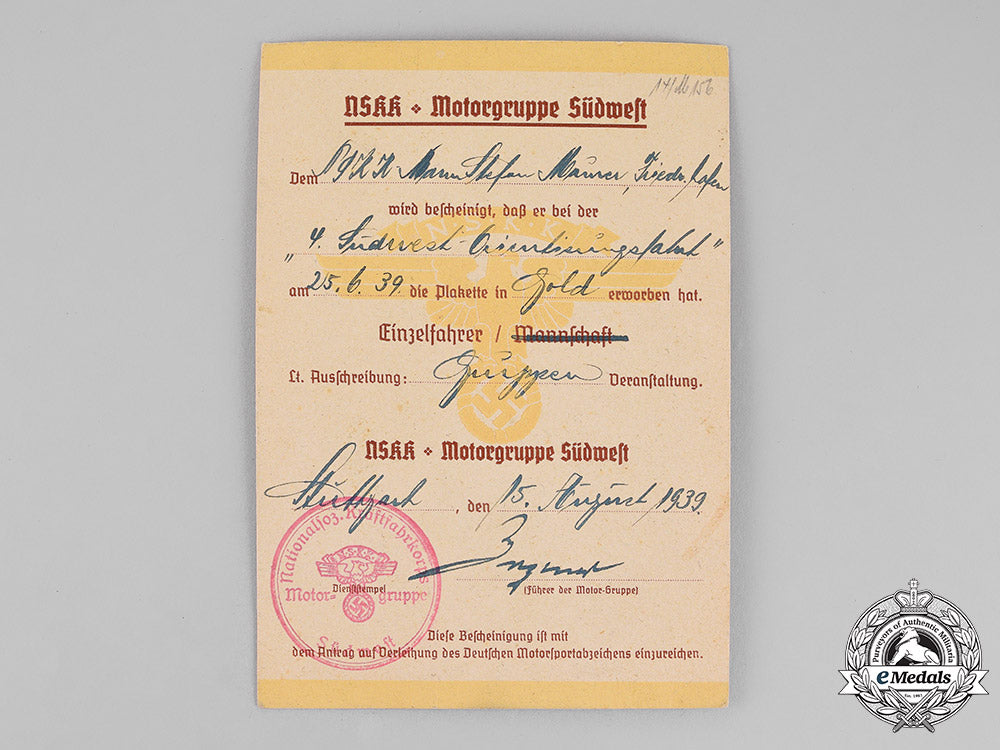 14/
NSKK Motorgruppe Südwest
Dem NSKK-Mann Stefan Maurer, Friedr.hafen
wird bescheinigt, daß er bei der
N.S.K.K.
"4. Südwest-Orientierungsfahrt"
am 25.6.39. die Plakette in Gold erworben hat.
Einzelfahrer / Mannschaft
Lt. Ausschreibung: Gruppen Veranstaltung.
NSKK Motorgruppe Südwest
Stuttgart, den 15. August 1939.
Nationalsoz. Kraftfahrkorps
N.S.K.K.
Dienststempel
Motor-gruppe
Südwest
(Führer der Motor-Gruppe)
Diese Bescheinigung ist mit
dem Antrag auf Verleihung des Deutschen Motorsportabzeichens einzureichen.
Purveyors of Authentic Militaria
eMedals